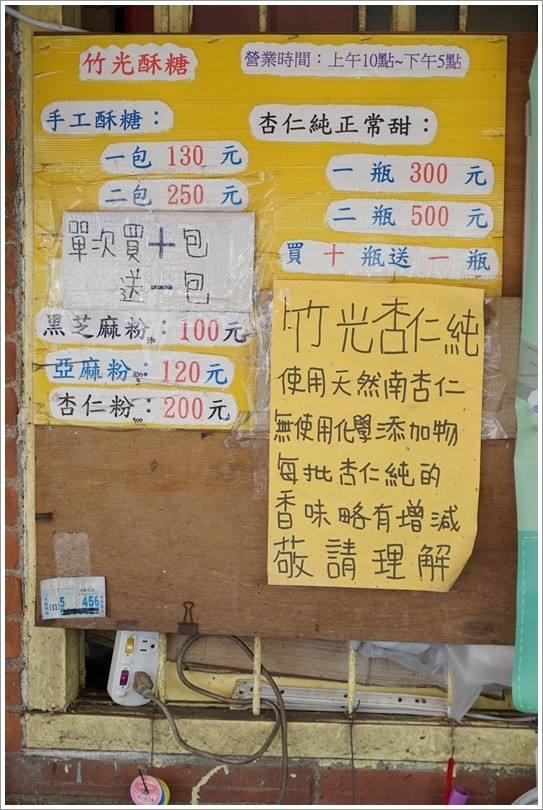 竹光酥糖
營業時間：上午10點~下午5點
手工酥糖：
一包 130 元
二包 250 元
單次買十包
送一包
黑芝麻粉：100元
亞麻粉：120元
杏仁粉：200元
杏仁純正常甜：
一 瓶 300 元
二 瓶 500 元
買 十 瓶送 一 瓶
竹光杏仁純
使用天然南杏仁
無使用化學添加物
每批杏仁純的
香味略有增減
敬請理解